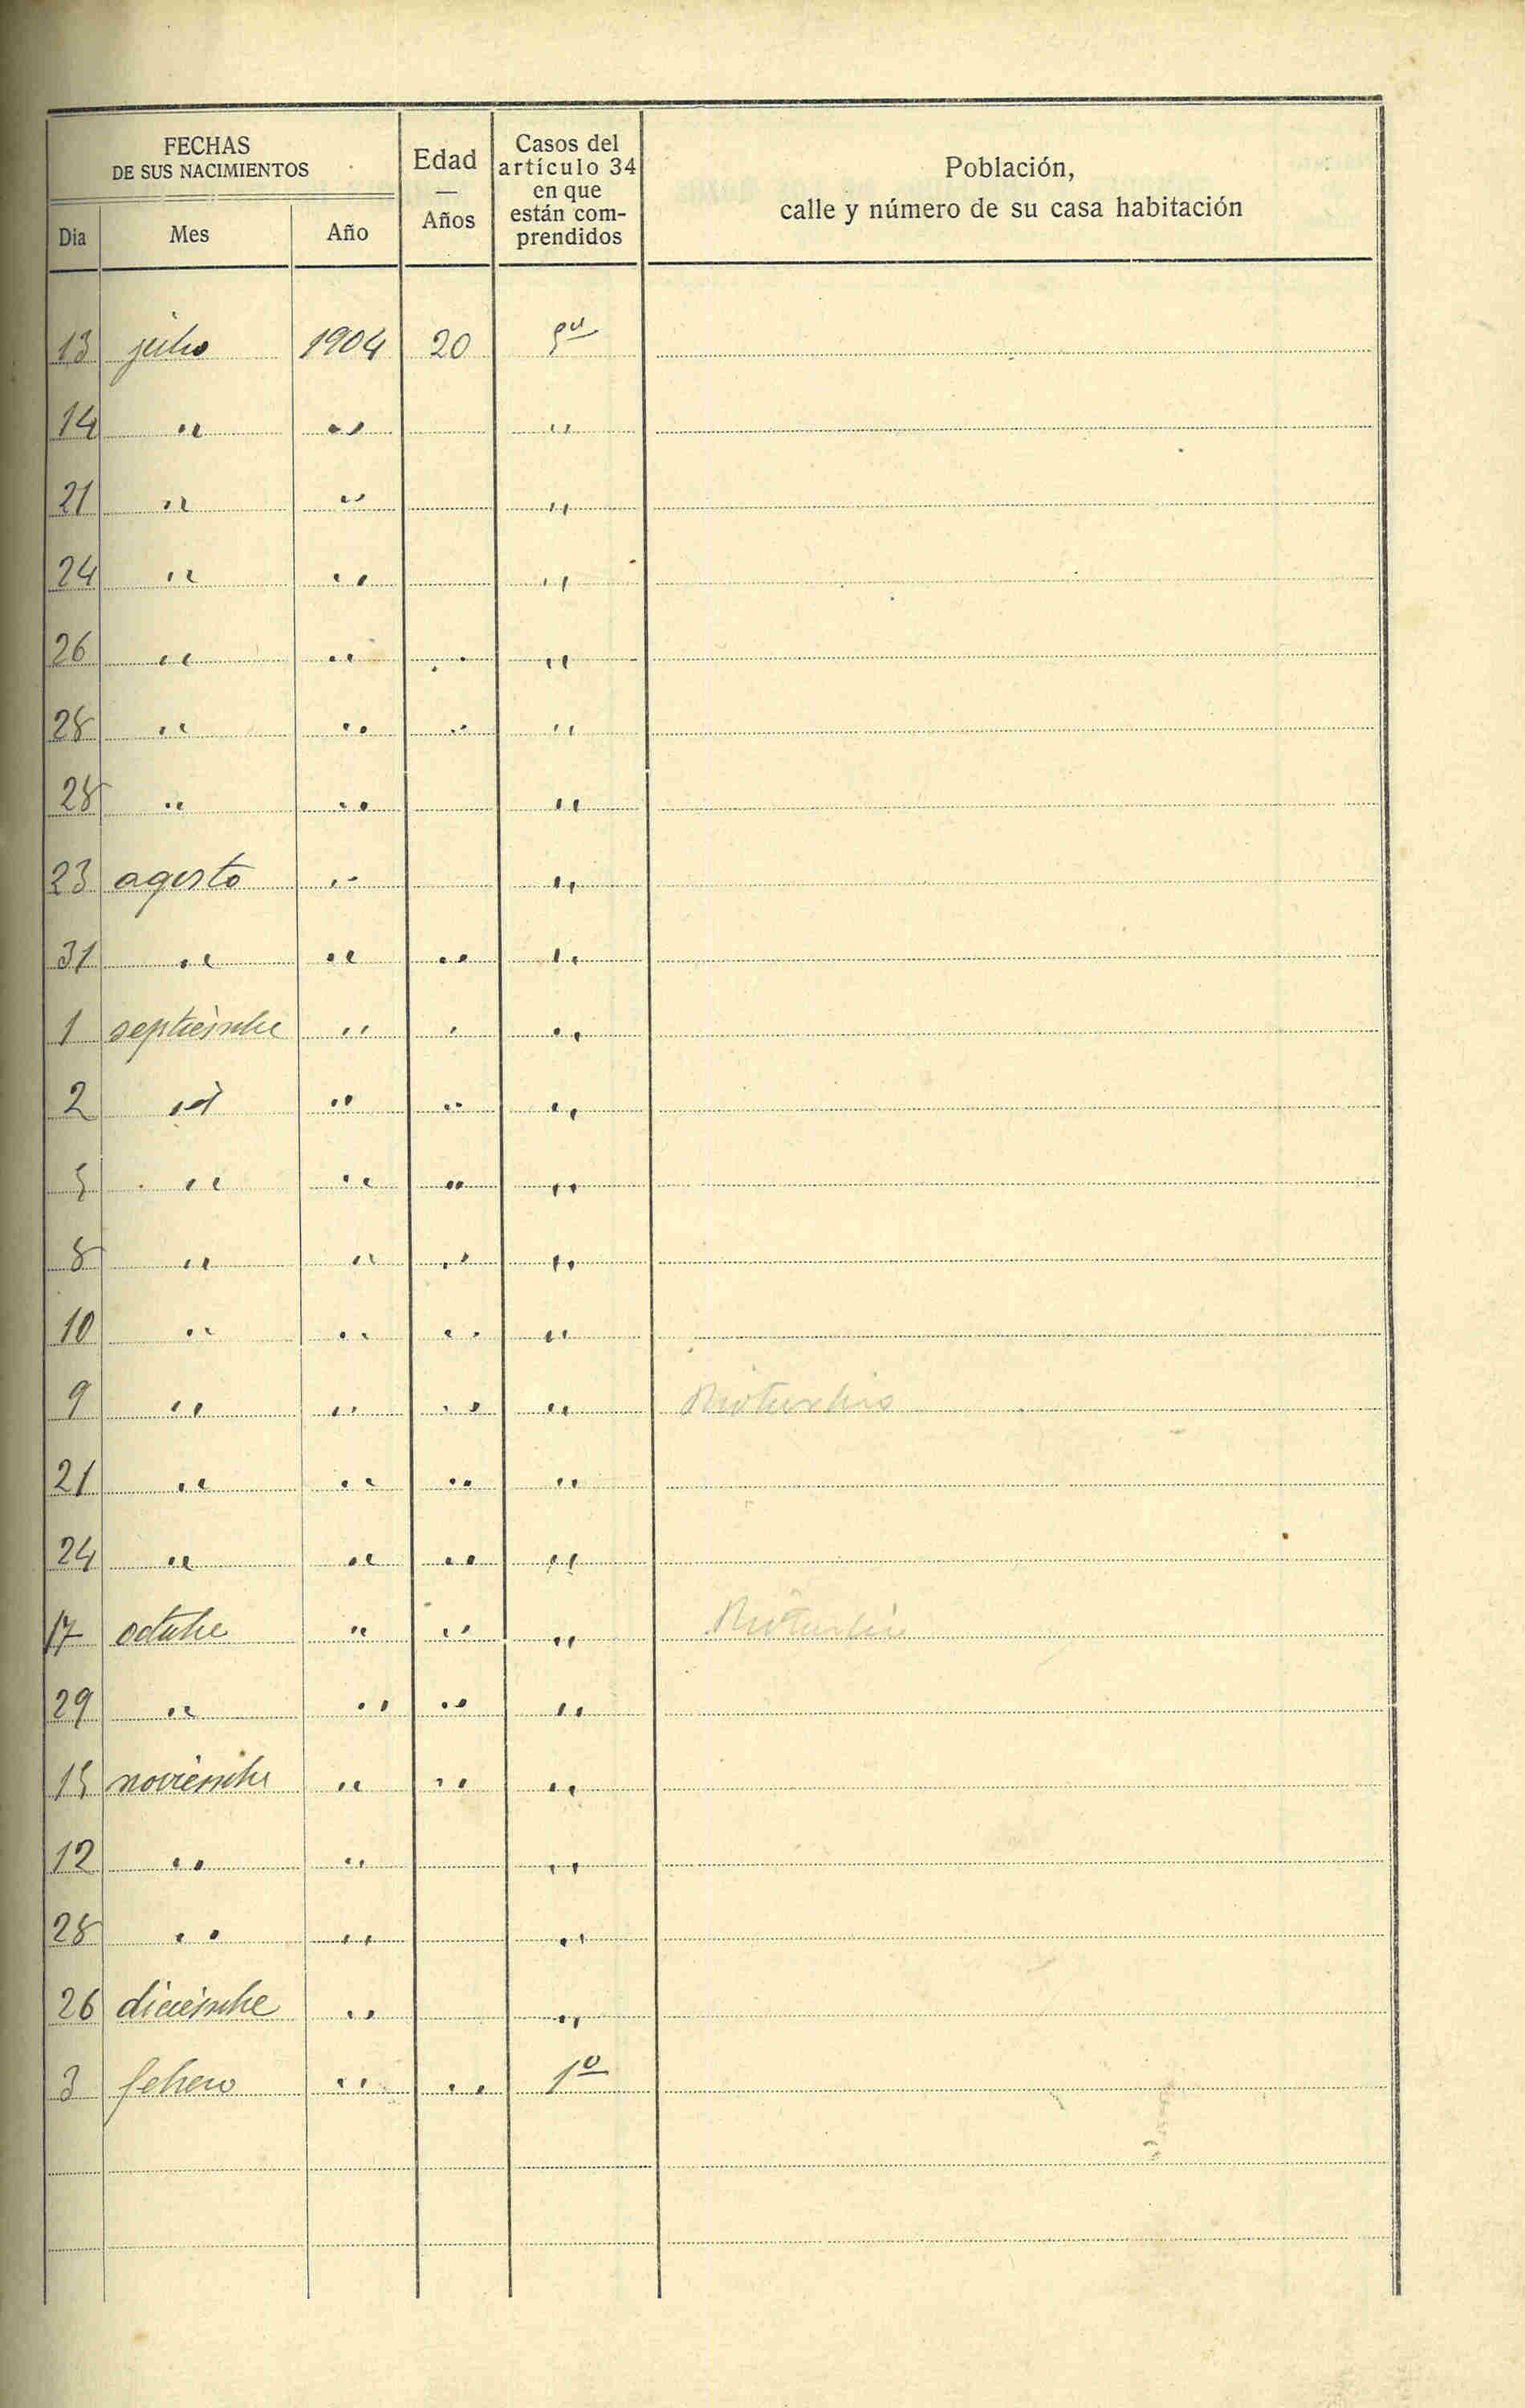 FECHAS
DE SUS NACIMIENTOS
Edad
—
Años
Casos del
artículo 34
en que
están com-
prendidos
Población,
calle y número de su casa habitación
Dia Mes Año
13 julio 1904 20 5º
14 " " "
21 " " "
24 " " "
26 " " " "
28 " " " "
28 " " "
23 agosto " "
31 " " " "
1 septiembre " " "
2 " " " "
5 " " " "
8 " " " "
10 " " " "
9 " " " "
21 " " " "
24 " " " "
17 octubre " " "
29 " " " "
15 noviembre " " "
12 " " "
28 " " "
26 diciembre " "
3 febrero " " 1º